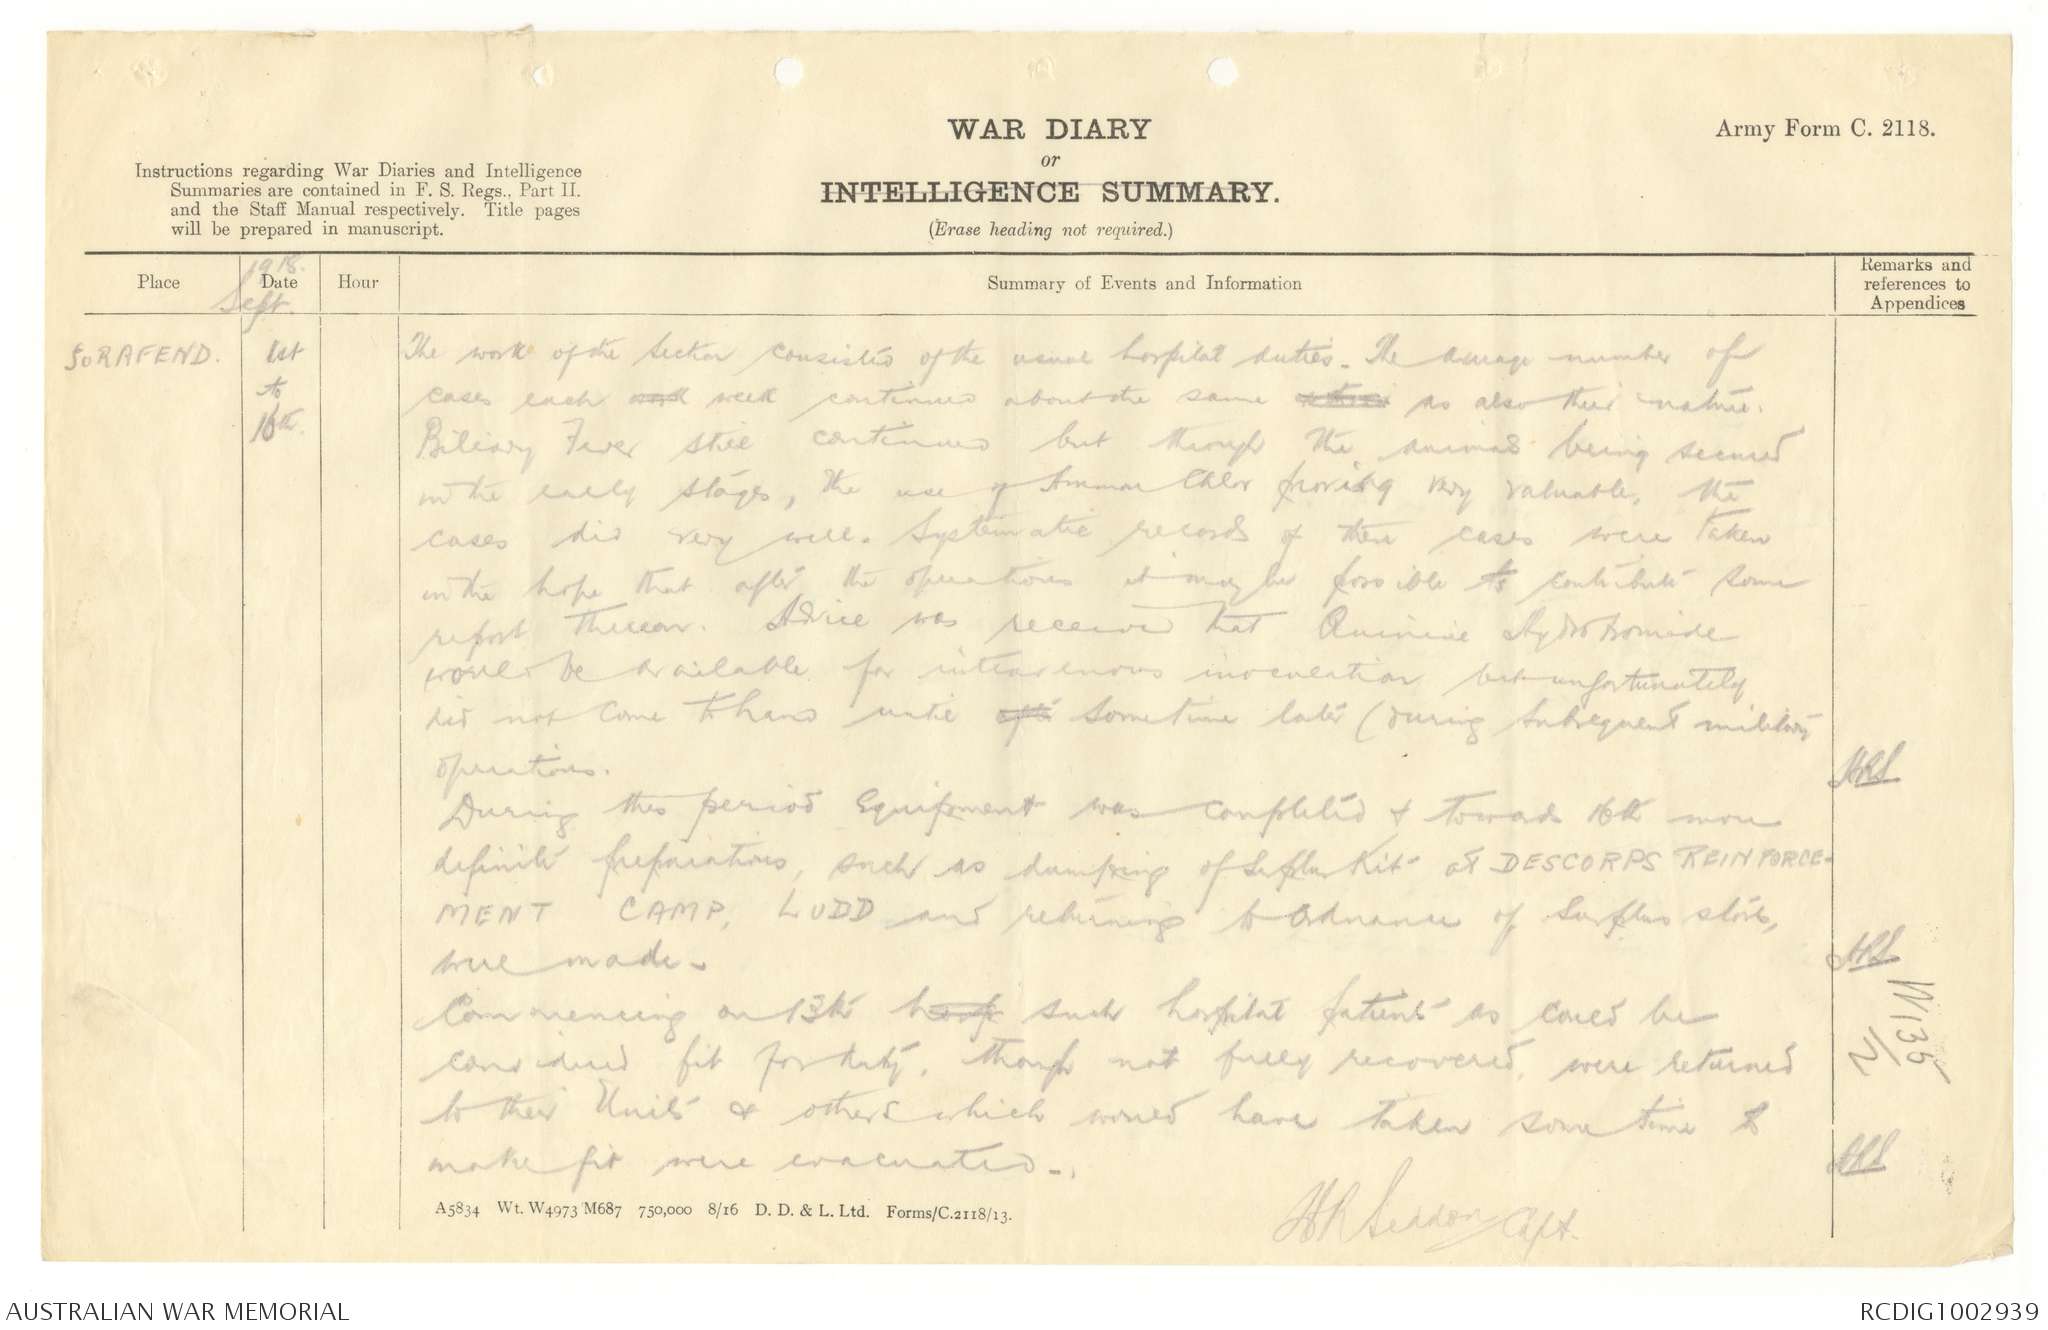 WAR DIARY
or
INTELLIGENCE SUMMARY.
(Erase heading not required.)
Army Form C. 2118.
Instructions regarding War Diaries and Intelligence
Summaries are contained in F. S. Regs., Part II.
and the Staff Manual respectively. Title pages
will be prepared in manuscript.
Place
1918.
Date
Sept.
Hour
Summary of Events and Information
Remarks and
references to
Appendices
SURAFEND.
1st
to
16th.
The work of the Section consisted of the usual hospital duties. The average number of
cases each week continued about the same as also their nature.
Biliary Fever still continued but through the animals being secured
in the early stages, the use of Ammon Chlor proving very valuable, the
cases did very well. Systematic records of these cases were taken
in the hope that after the operations it may be possible to contribute some
report thereon. Advice was received that Quinine Hydrobromide
would be available for intravenous inoculation but unfortunately
did not come to hand until sometime later (during subsequent military
operations.
HRS
During this period Equipment was completed & towards 16th more
definite preparations, such as dumping of Surplus Kit at DESCORPS REINFORCE-
MENT CAMP, LUDD and returning to Ordnance of Surplus stores,
were made.
HRS
Commencing on 13th such hospital patients as could be
considered fit for duty, though not fully recovered, were returned
to their Units & others which would have taken some time to
make fit were evacuated.
HRS
W135
/2
HR Seddon Capt.
A5834 Wt. W4973 M687 750,000 8/16 D. D. & L. Ltd. Forms/C.2118/13.
AUSTRALIAN WAR MEMORIAL
RCDIG1002939